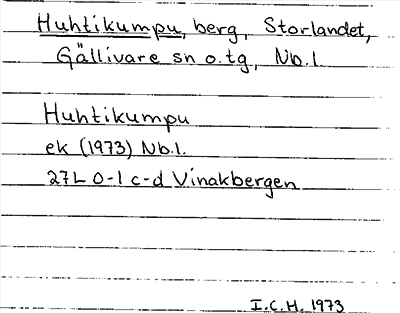 Huhtikumpu, berg, Storlandet,
Gällivare sn o. tg, Nb. l.
Huhtikumpu
ek (1973) Nb. l.
27L 0-1 c-d Vinakbergen
I. C. H. 1973